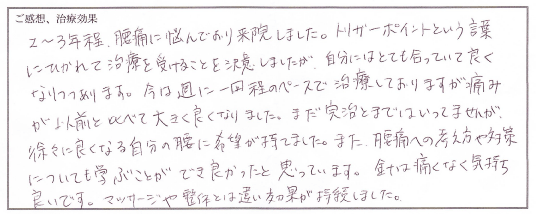 ご感想、治療効果
2～3年程、腰痛に悩んでおり来院しました。トリガーポイントという言葉
にひかれて治療を受けることを決意しましたが、自分にはとても合っていて良く
なりつつあります。今は週に一回程のペースで治療しておりますが痛み
が以前と比べて大きく良くなりました。まだ完治とまではいってませんが、
徐々に良くなる自分の腰に希望が持てました。また、腰痛への考え方や対策
についても学ぶことができ良かったと思っています。針は痛くなく気持ち
良いです。マッサージや整体とは違い効果が持続しました。